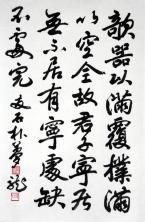 欹器以滿覆撲滿
以空全故君子寧居
無不居有寧處缺
不處完 友石朴